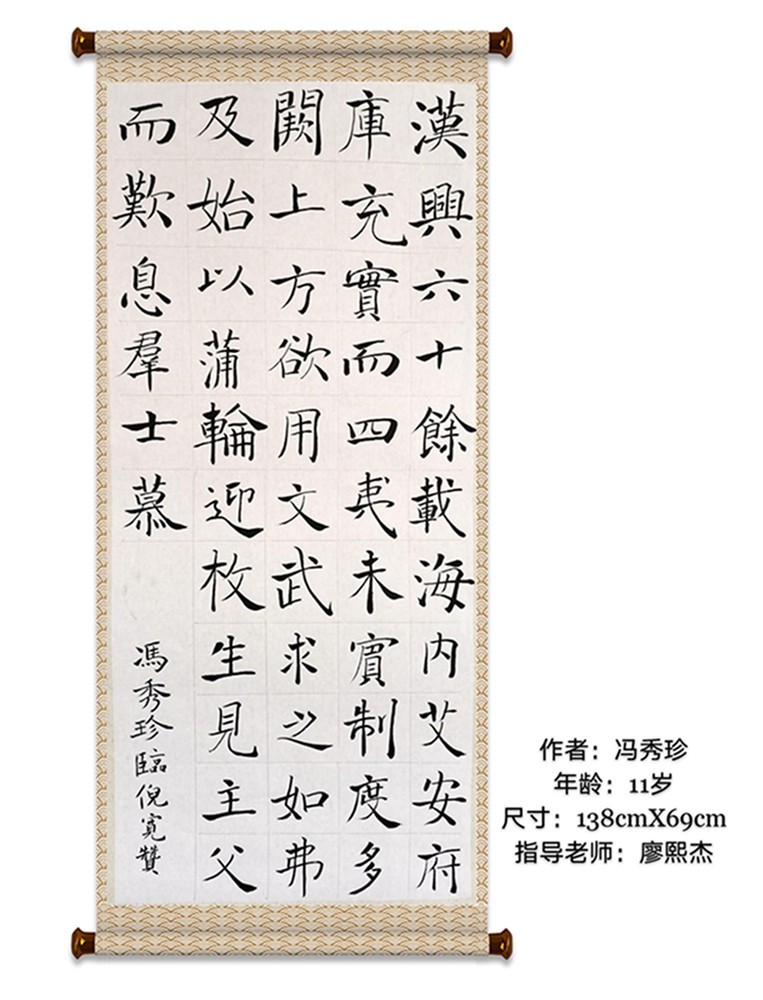 漢興六十餘載海内艾安府
庫充實而四夷未賓制度多
闕上方欲用文武求之如弗
及始以蒲輪迎枚生見主父
而歎息羣士慕
馮秀珍臨倪寬贊
作者：冯秀珍
年龄：11岁
尺寸：138cmX69cm
指导老师：廖熙杰